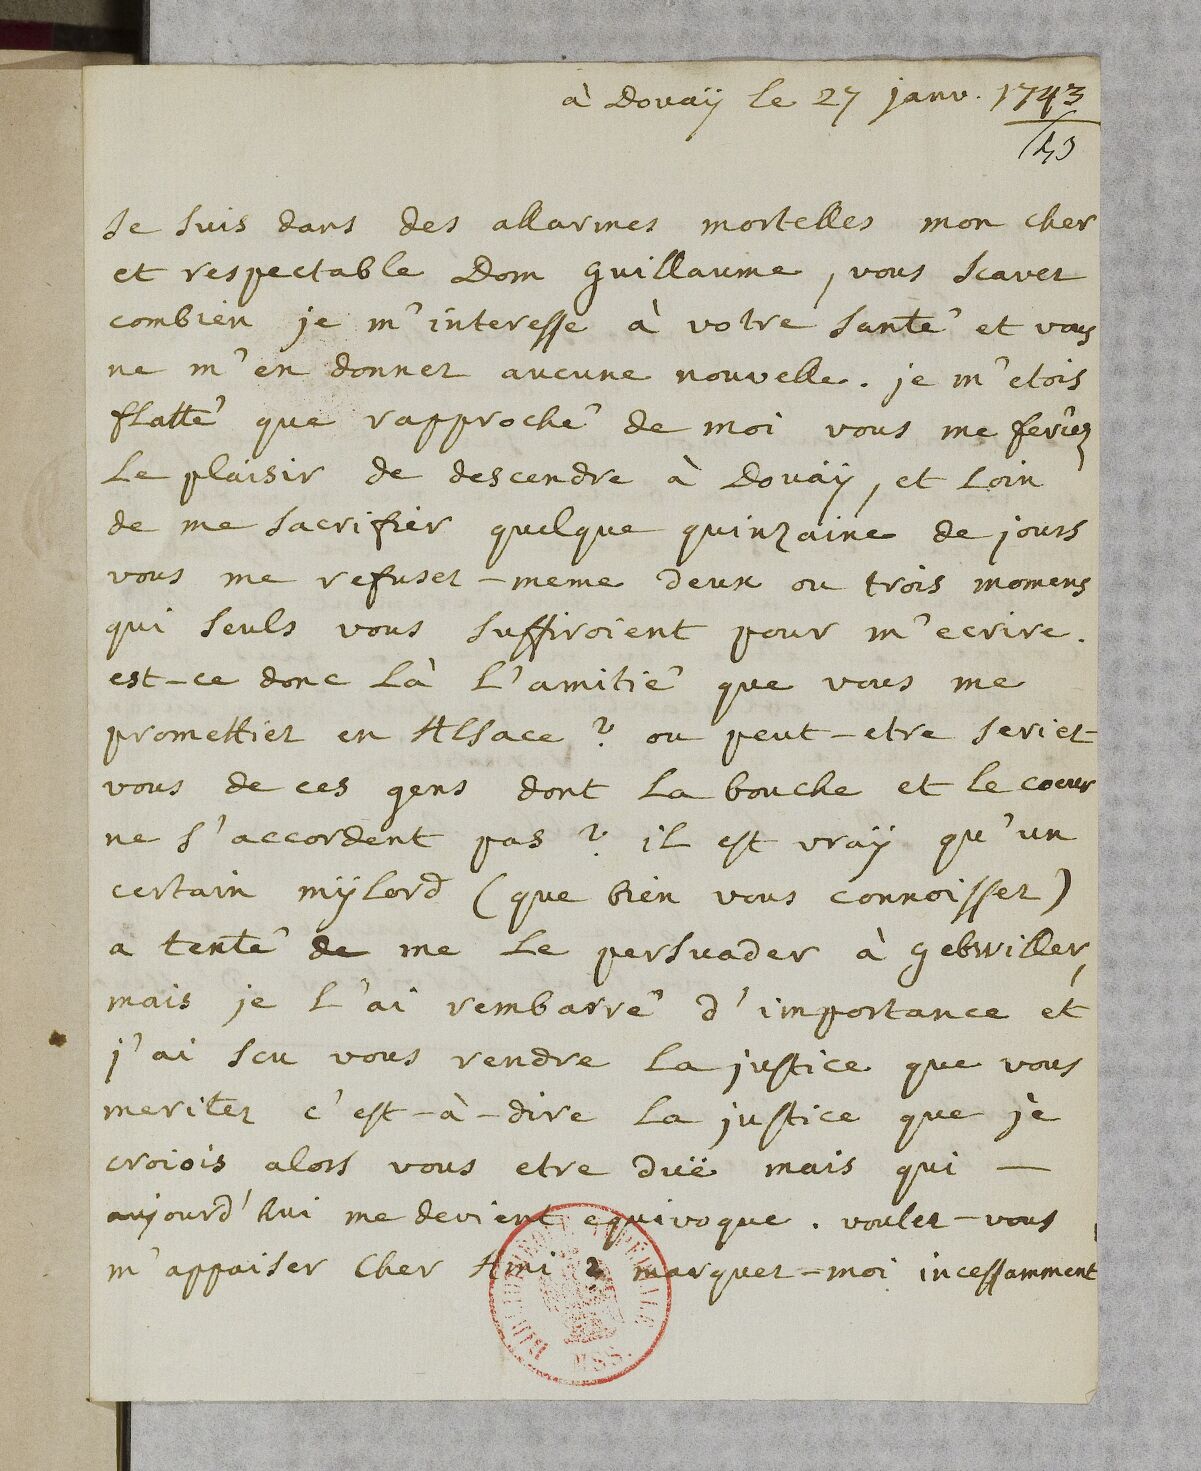 à Douaÿ le 27 janv. 1743
je suis dans des allarmes mortelles mon cher
et respectable Dom guillaume, vous scavez
combien je m'interesse à votre santé et vous
ne m'en donnez aucune nouvelle. je m'etois
flatté que rapproché de moi vous me feriez
le plaisir de descendre à Douaÿ, et loin
de me sacrifier quelque quinzaine de jours
vous me refusez-meme deux ou trois momens
qui seuls vous suffiroient pour m'ecrire.
est-ce donc là l'amitié que vous me
promettiez en Alsace ? ou peut-etre seriez-
vous de ces gens dont la bouche et le coeur
ne s'accordent pas ? il est vraÿ qu'un
certain mÿlord (que bien vous connoissez)
a tenté de me le persuader à gebwiller,
mais je l'ai rembarré d'importance et
j'ai scu vous rendre la justice que vous
meritez c'est-à-dire la justice que je
croiois alors vous etre duë mais qui —
aujourd'hui me devient equivoque. voulez-vous
m'appaiser cher Ami ? marquez-moi incessamment
MSS.